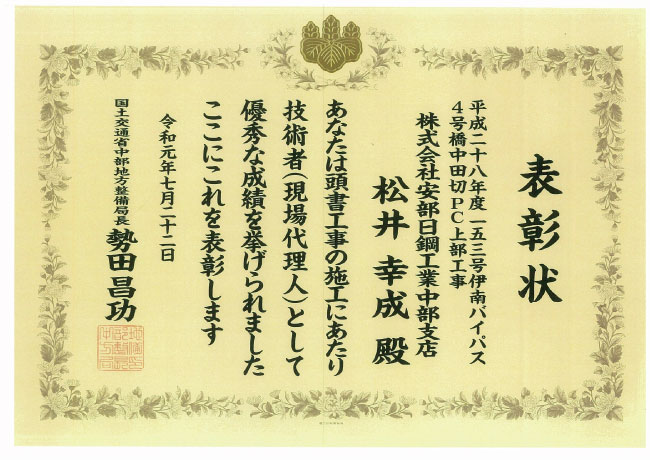 表彰状
平成二十八年度一五三号伊南バイパス
4号橋中田切PC上部工事
株式会社安部日鋼工業中部支店
松井幸成殿
あなたは頭書工事の施工にあたり
技術者(現場代理人)として
優秀な成績を挙げられました
ここにこれを表彰します
令和元年七月二十二日
国土交通省中部地方整備局長 勢田昌功